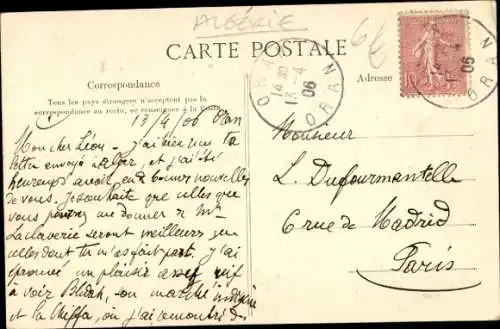 ALGÉRIE
CARTE POSTALE
Correspondance
Tous les pays étrangers n'acceptent pas la
correspondance au recto, se renseigner à la
Adresse
ORAN
14 30
13 - 4
06
ORAN
06
ORAN
10
6€
13/4/06 Oran
Mon cher Léon. J'ai hier eu ta
lettre envoyé à Alger, et j'ai été
heureux d'avoir eu de bonnes nouvelles
de vous. Je souhaite que celles que
vous pourrez me donner de Mme
Laclaverie seront meilleures que
celles dont tu m'as fait part. J'ai
éprouvé un plaisir assez vif
à voir Blidah, son marché indigène
et la Chiffa, où j'ai rencontré des
Monsieur
L. Dufourmantelle
6 rue de Madrid
Paris